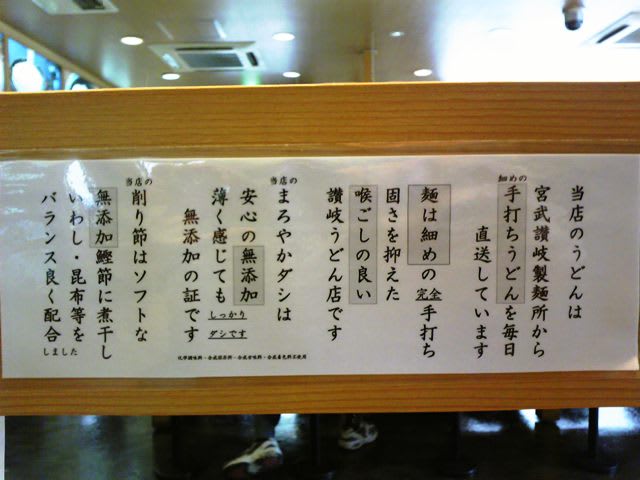 当店のうどんは
宮武讃岐製麺所から
細めの
手打ちうどんを毎日
直送しています
麺は細めの完全手打ち
固さを抑えた
喉ごしの良い
讃岐うどん店です
当店の
まろやかダシは
安心の無添加
薄く感じてもしっかりダシです
無添加の証です
化学調味料・合成保存料・合成甘味料・合成着色料不使用
当店の
削り節はソフトな
無添加鰹節に煮干し
いわし・昆布等を
バランス良く配合しました